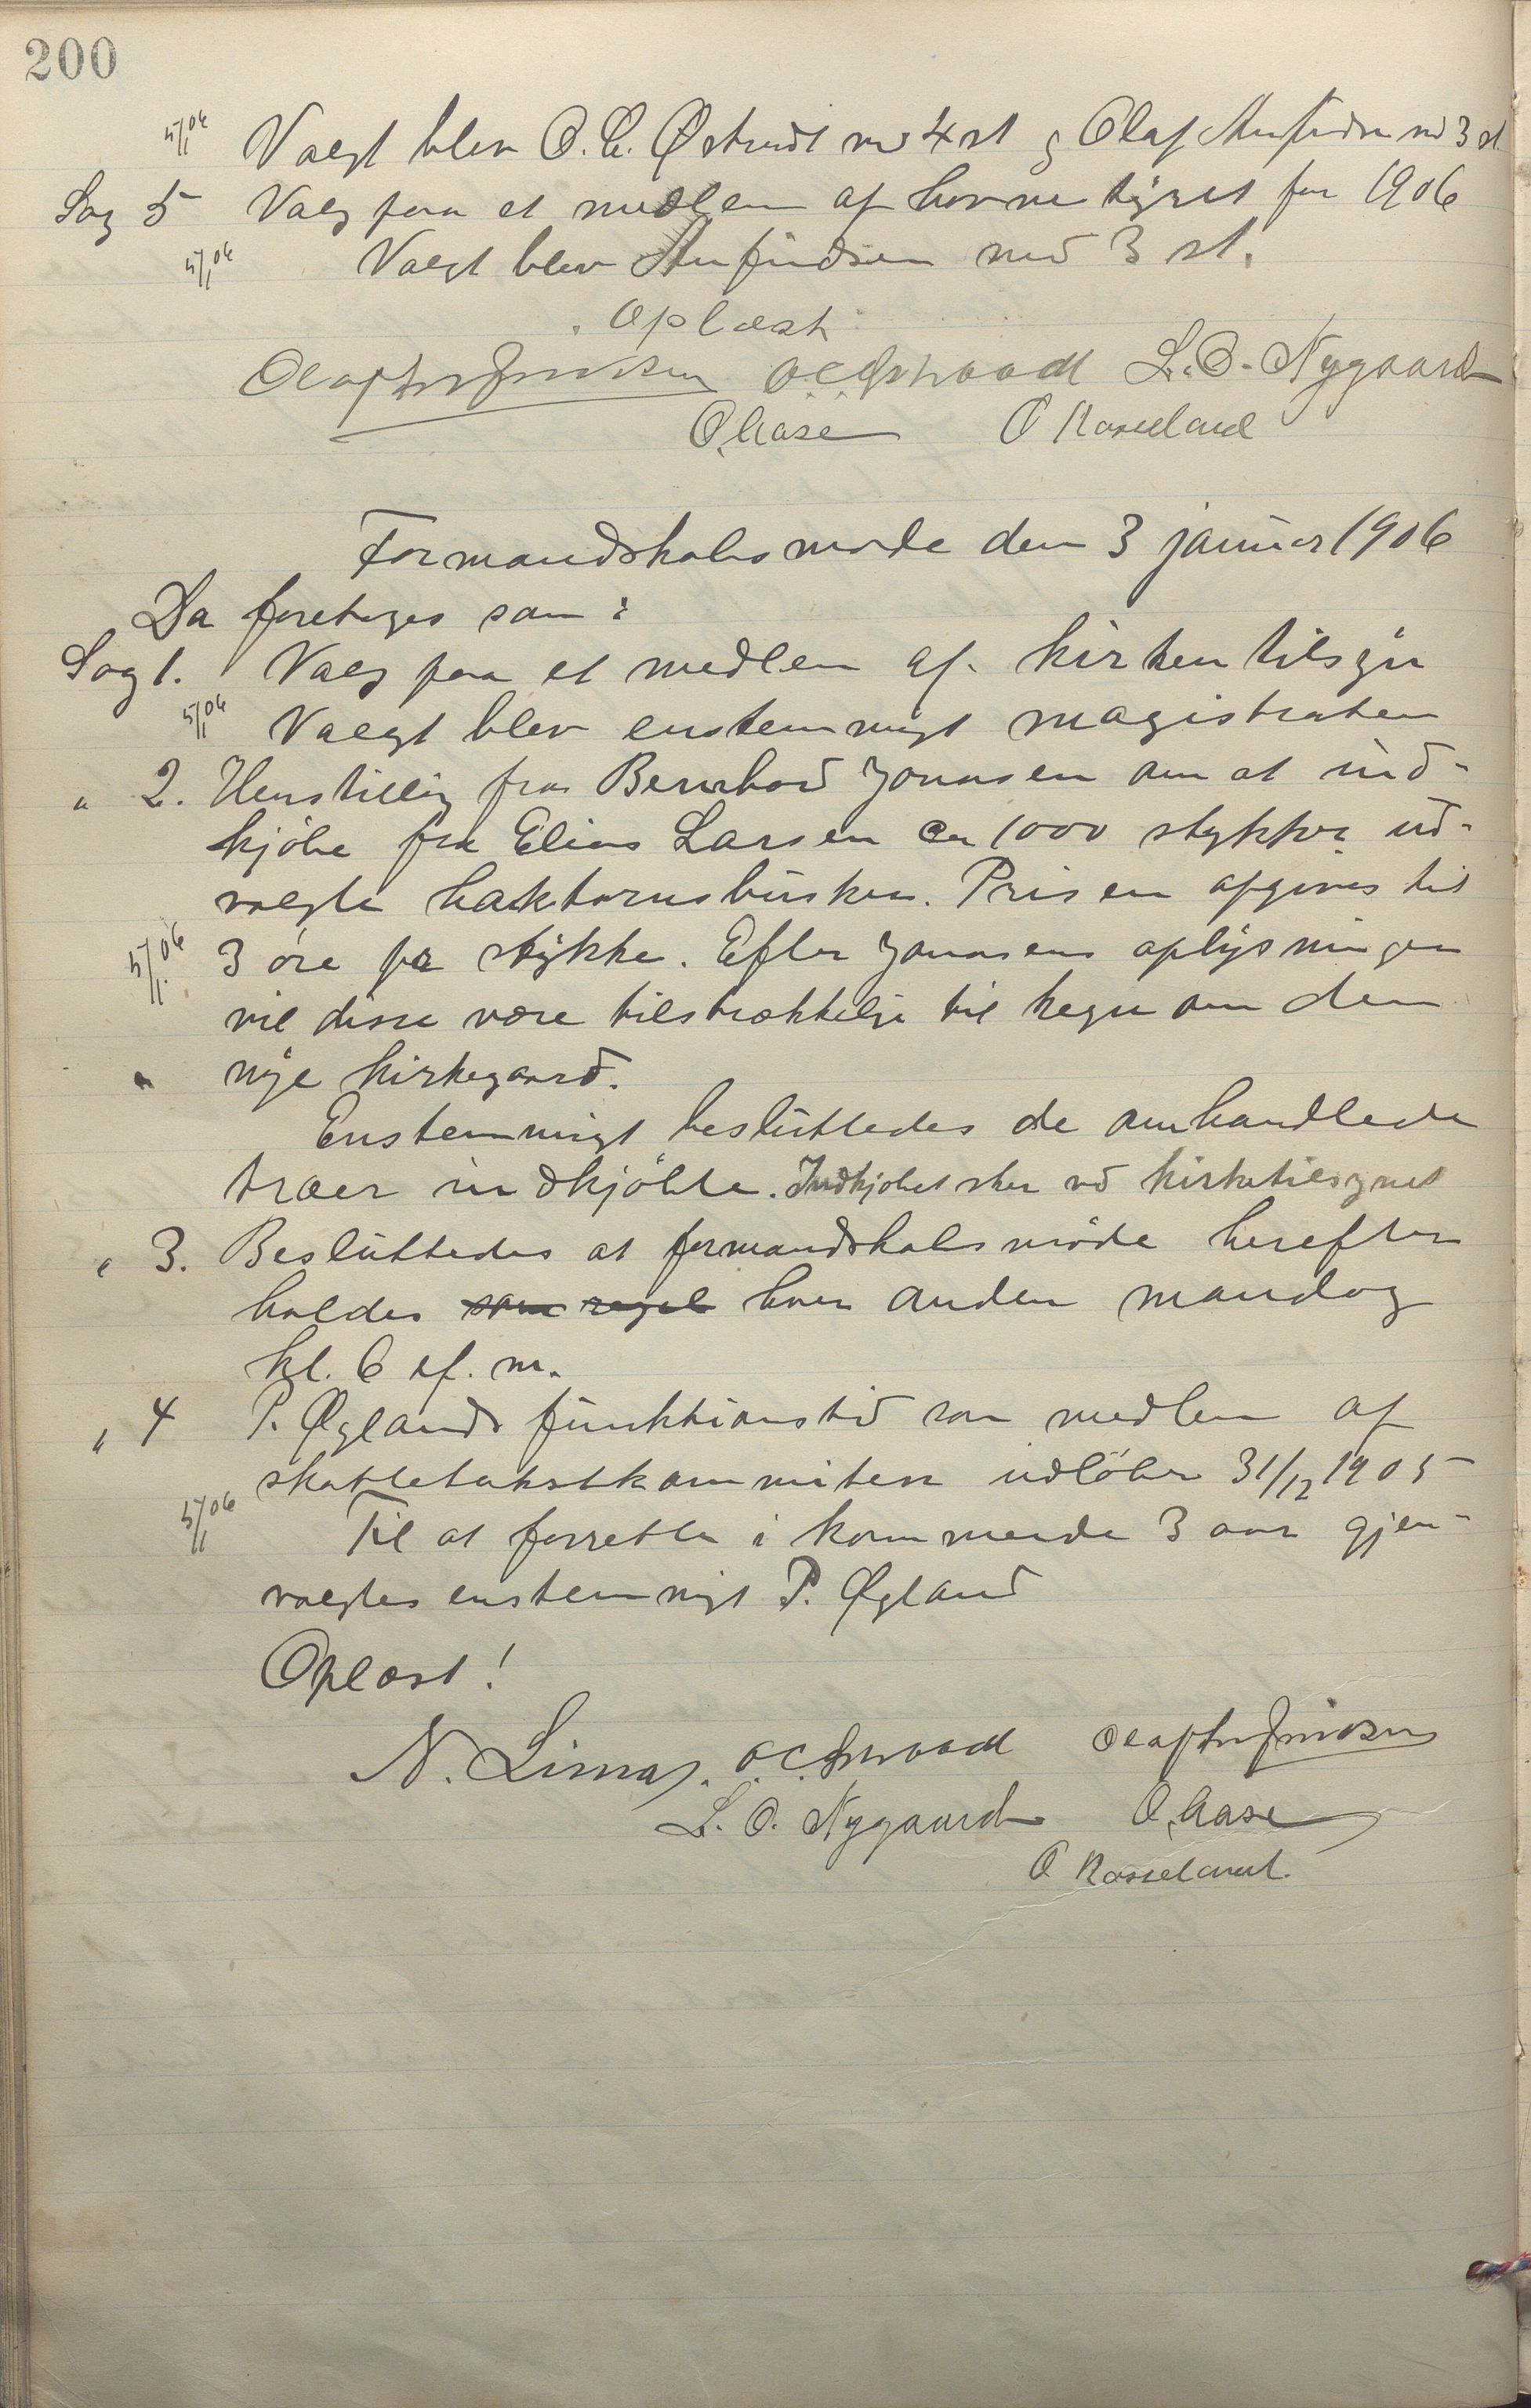 200
5/1 06 Valgt blev O. C. Østvedt med 4 st og Olaf Anfindsen med 3 st.
Sag 5 Valg paa et medlem af havnestyret for 1906
5/1 06 Valgt blev Anfindsen med 3 st.
Oplæst
Olaf Anfindsen L. O. Nygaard
O. Aase O Rosseland
Formandskabsmøde den 3 januar 1906
Da foretoges som:
Sag 1. Valg paa et medlem af kirketilsyn
5/1 06 Valgt blev enstemmigt magistraten
" 2. Henstilling fra Bernhard Jonassen om at ind-
kjøbe fra Elias Larsen ca 1000 stykker ud-
valgte haktornsbusker. Prisen opgives til
5/1 06 3 øre pr stykke. Efter Jonassens oplysninger
vil disse være tilstrækkelige til hegn om den
" nye kirkegaard.
Enstemmigt besluttedes de omhandlede
træer indkjøbte. Indkjøbet sker ved kirketilsynet
" 3. Besluttedes at formandskabsmøde herefter
holdes som regel hver anden mandag
kl. 6 ef. m.
" 4 P. Øglands funktionstid som medlem af
skattetakstkommiteen udløber 31/12 1905
5/1 06 Til at forrette i kommende 3 aar gjen-
valgtes enstemmigt P. Øgland
Oplæst!
N. Olaf Anfindsen
L. O. Nygaard O. Aase
O Rosseland.